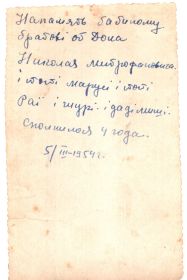 На память бабиному
братові от Дона
Николая митрофановича
і тоті маруси і тоті
Раї і шурі. і даділюші.
Сполнилося 4 года.
5/III-1954 г.